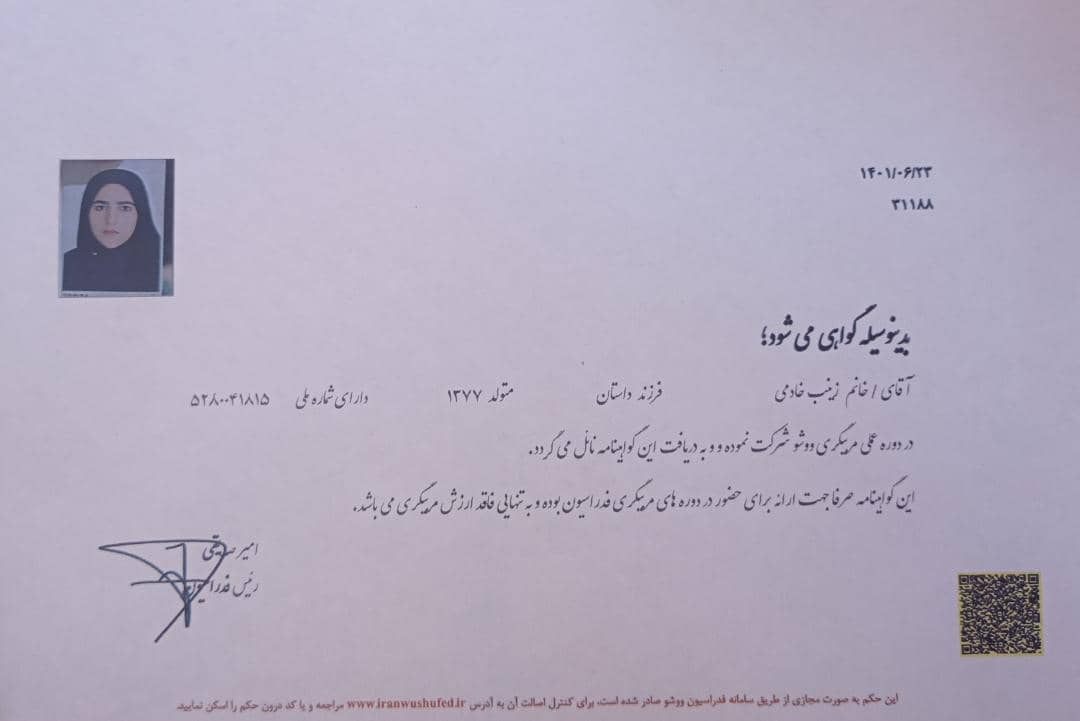 ۱۴۰۱/۰۶/۲۳
۳۱۱۸۸
بدینوسیله گواهی می شود؛
آقای / خانم زینب خادمی فرزند داستان متولد ۱۳۷۷ دارای شماره ملی ۵۲۸۰۰۴۱۸۱۵
در دوره عملی مربیگری ووشو شرکت نموده و و به دریافت این گواهینامه نائل می گردد.
این گواهینامه صرفا جهت ارائه برای حضور در دوره های مربیگری فدراسیون بوده و به تنهایی فاقد ارزش مربیگری می باشد.
امیر صدیقی
رئیس فدراسیون
این حکم به صورت مجازی از طریق سامانه فدراسیون ووشو صادر شده است، برای کنترل اصالت آن به آدرس www.iranwushufed.ir مراجعه و یا کد درون حکم را اسکن نمایید.